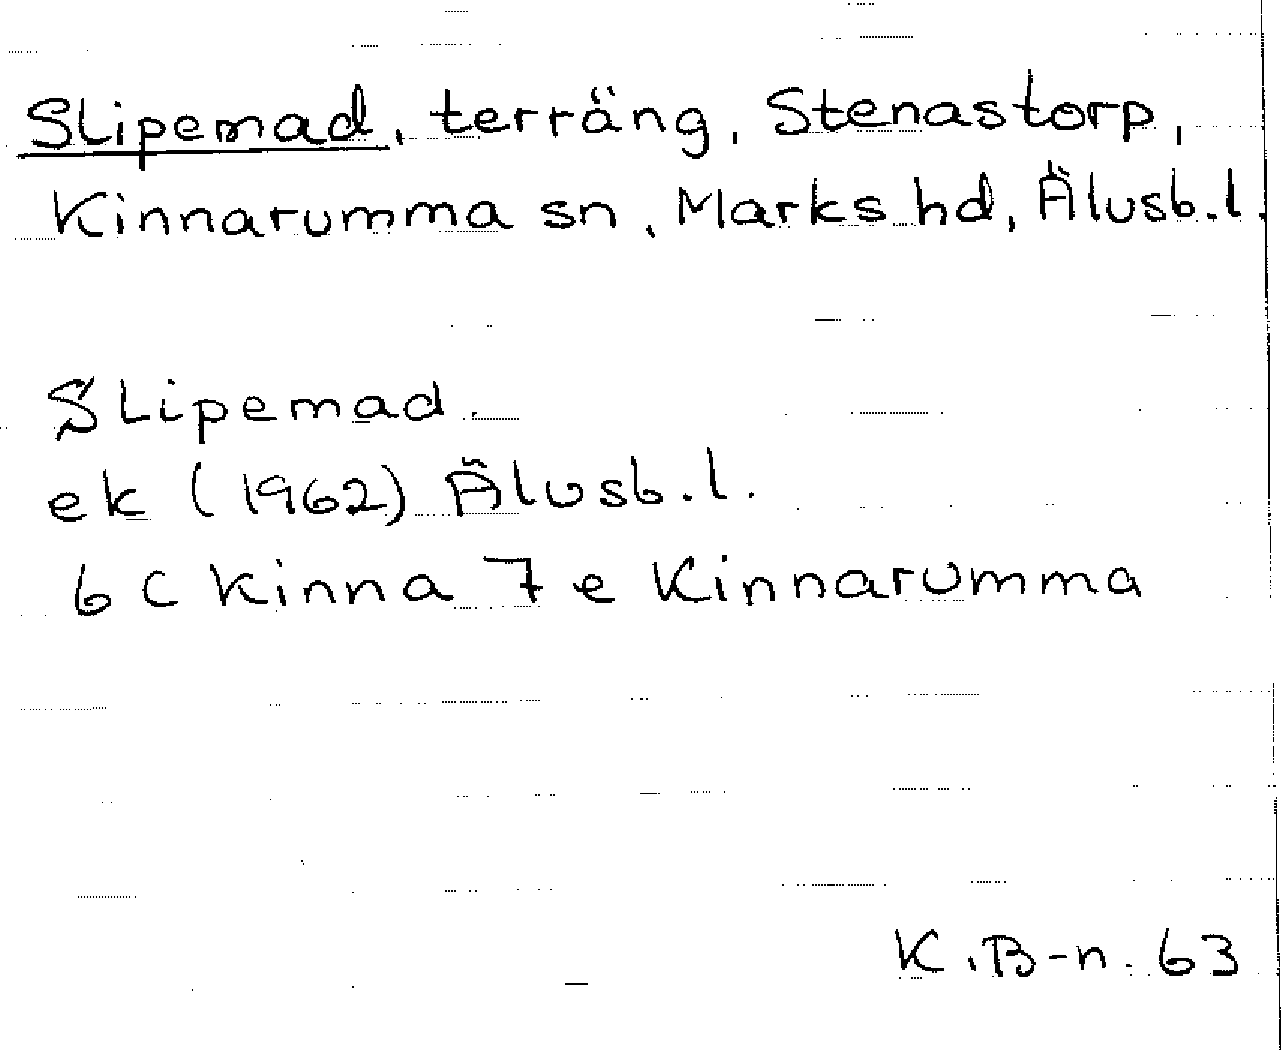 Slipemad, terräng, Stenastorp,
Kinnarumma sn, Marks hd, Älvsb.l.
Slipemad
ek (1962) Älvsb.l.
6 C Kinna 7 e Kinnarumma
K.B-n. 63